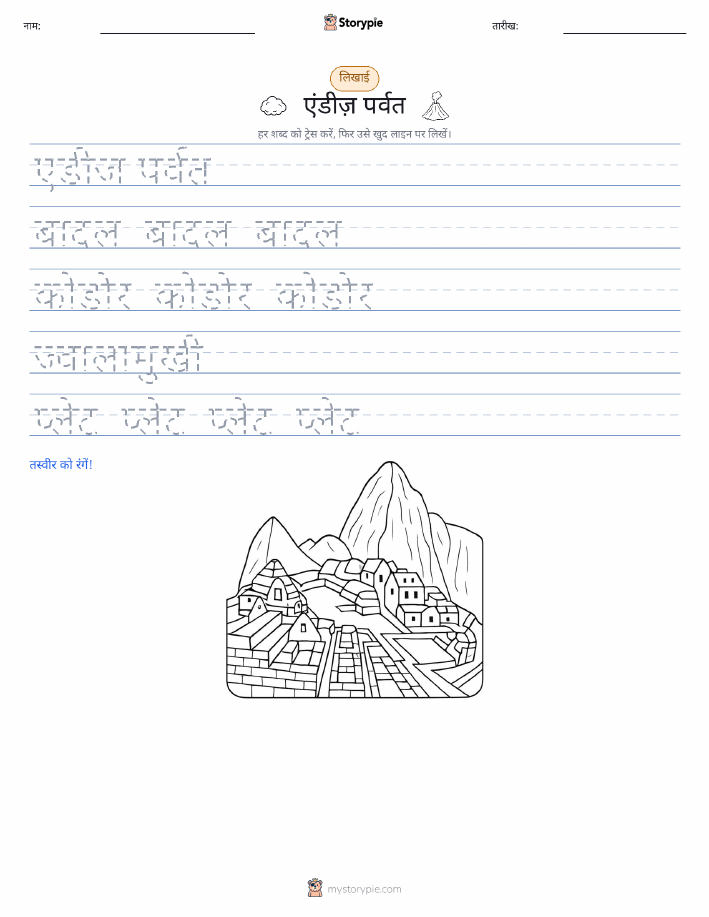 नाम:
Storypie
तारीख:
लिखाई
एंडीज़ पर्वत
हर शब्द को ट्रेस करें, फिर उसे खुद लाइन पर लिखें।
एंडीज पर्वत
बादल बादल बादल
कोंडोर कोंडोर कोंडोर
ज्वालामुखी
प्लेट प्लेट प्लेट प्लेट
तस्वीर को रंगें!
mystorypie.com